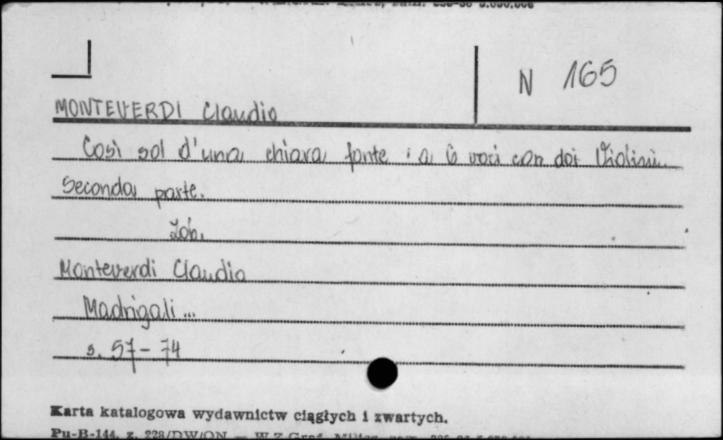 N 165
MONTEVERDI Claudio
Così sol d'una chiara fonte : a 6 voci con doi Violini.
Seconda parte.
Zob.
Monteverdi Claudio
Madrigali ...
s. 57-74
Karta katalogowa wydawnictw ciągłych i zwartych.
Pu-B-144, z. 228/DW/ON — W.Z.Graf.